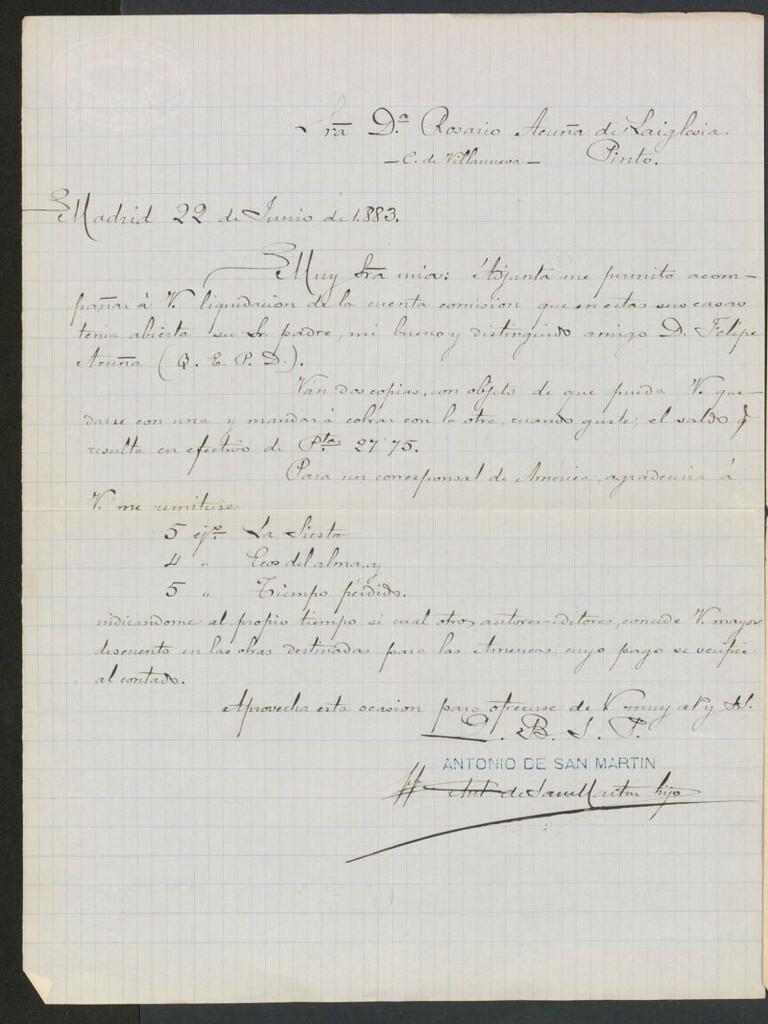 Sra D.ª Rosario Acuña de Laiglesia.
- C. de Villanueva - Pinto.
Madrid 22 de Junio de 1.883.
Muy Sra mia: Adjunta me permito acom-
pañar á V. liquidacion de la cuenta comision que en estas sus casas
tenia abierta su Sr padre, mi bueno y distinguido amigo D. Felipe
Acuña (Q. E. P. D.).
Ván dos copias, con objeto de que pueda V. que-
darse con una y mandar á cobrar con la otra, cuando guste, el saldo q
resulta en efectivo de Ptas 27'75.
Para un corresponsal de America, agradeceria á
V. me remitiese
5 ejs. La Siesta
4 " Ecos del alma, y
5 " Tiempo perdido.
indicandome al propio tiempo si cual otros autores-editores, concede V. mayor
descuento en las obras destinadas para las Americas, cuyo pago se verifica
al contado.
Aprovecha esta ocasion para ofrecerse de V. muy at.º y S.S.
Q. B. S. P.
ANTONIO DE SAN MARTIN
Ant. de San Martin hijo